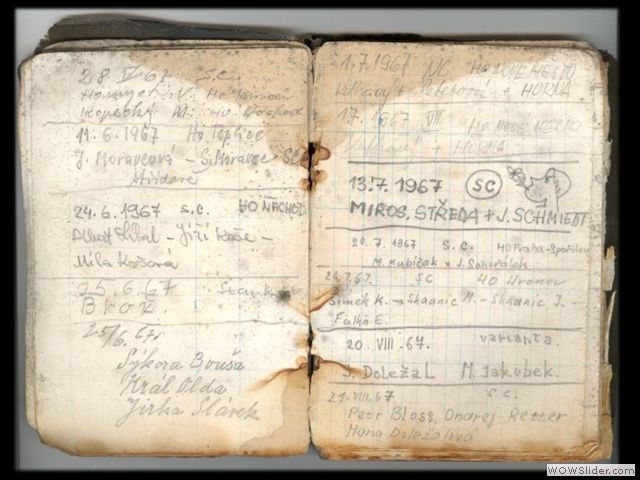 28 V 67 S.C.
Kopecký M. HO Náchod
11.6.1967 Ho Teplice
J. Moravcová - S. Moravec SC
Středare
24.6.1967 S.C. HO NÁCHOD
Albert Líbal - Jiří Kaše -
Míla Košara
25.6.67
Brož.
25/6.67.
Sýkora Bouša
Král Olda
Jirka Slávek
1.7.1967 NC HO NOVÉ MĚSTO
+ HORNA
17. 1967 VII HO NOVÉ MĚSTO
+ HORNA
13.7.1967 SC
MIROS. STŘEDA + J. SCHMIEDT
20.7.1967 S.C. HO Praha-Spořilov
M. Kubíček + J. Sohořálek
24.7.67. SC HO Hronov
Šimek K. - Skaanic M. - Skaanic J. -
Fulka E.
20. VIII. 67. varianta.
J. DOLEŽAL M. Jakubek.
21. VIII. 67 S.C.
Petr Bloss, Ondrej Retter
Hana Doležalová
WOWSlider.com